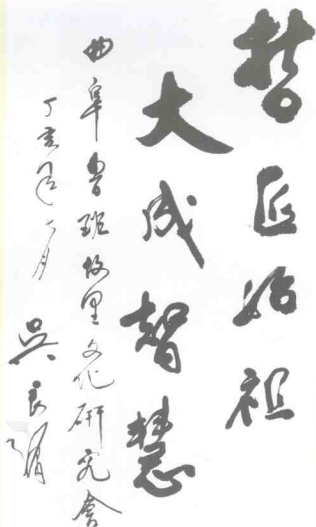 哲匠始祖
大成智慧
曲阜鲁班故里文化研究會
丁亥年八月
吴良镛